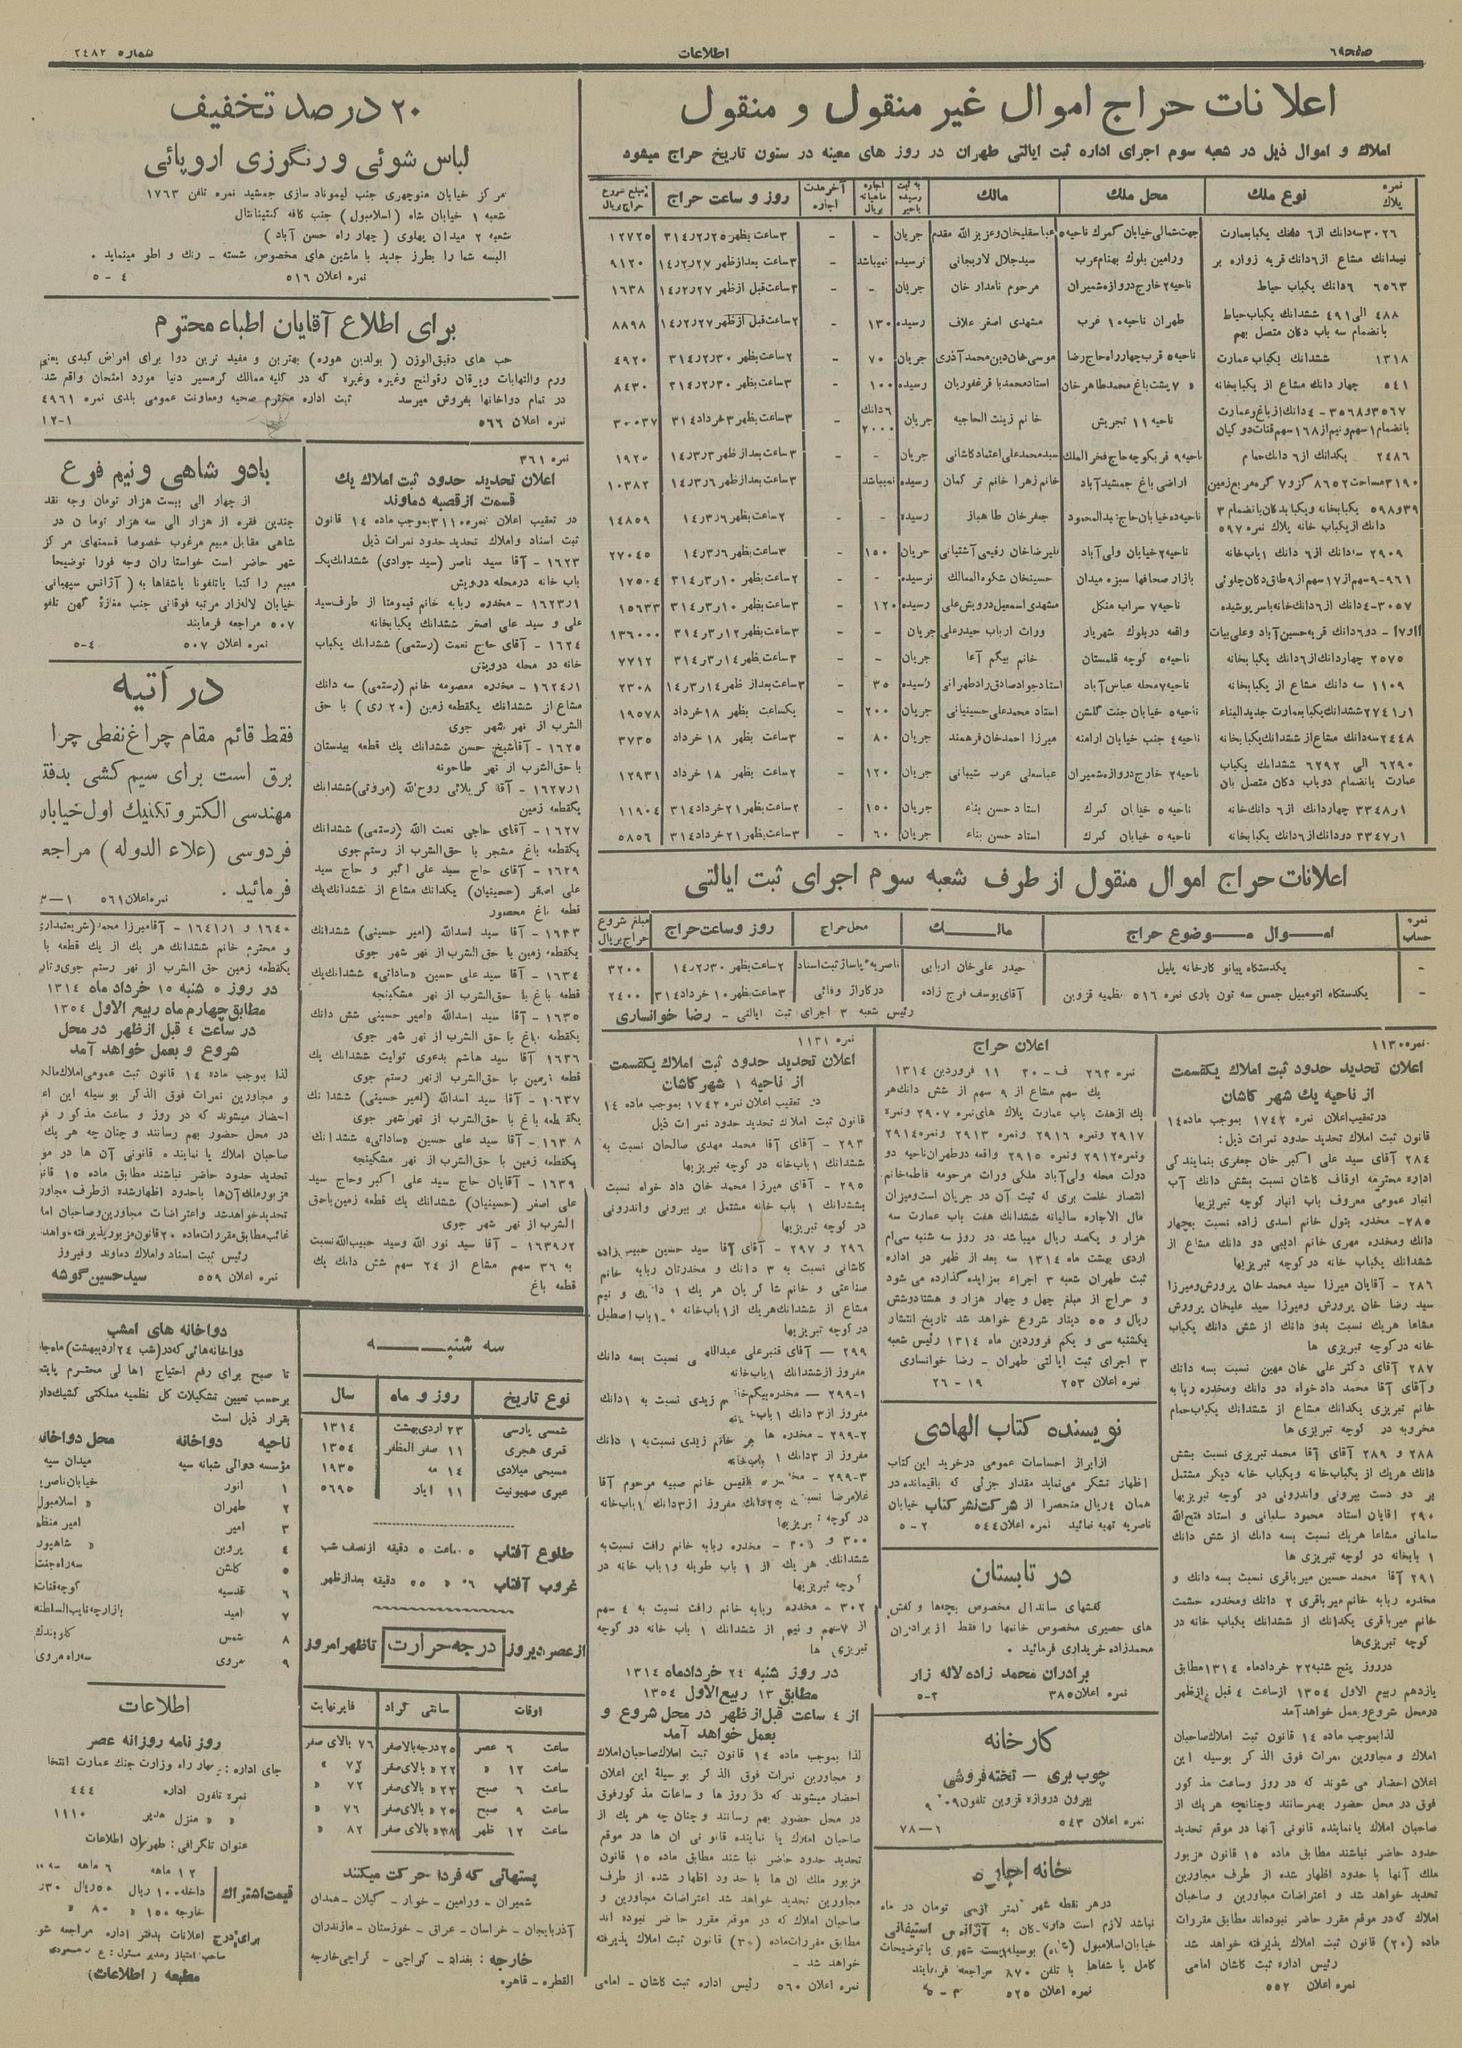 صفحه ۶
اطلاعات
شماره ۲۴۸۲
اعلانات حراج اموال غیر منقول و منقول
املاك و اموال ذیل در شعبه سوم اجرای اداره ثبت ایالتی طهران در روز های معینه در ستون تاریخ حراج میشود
نمره پلاك نوع ملك محل ملك مالك روز و ساعت حراج
۳۰۲۶ سه دانك از ۶ دانك یکبابعمارت جهت شمالی خیابان گمرك ناحیه ۵ عباسقلیخان و عزیز الله مقدم جریان - - ۳ ساعت بظهر ۳۱۴/۲/۲۵ ۱۲۷۲۵
نیمدانك مشاع از ۶ دانك قریه زواره بر ورامین بلوك بهنام عرب سید جلال لاریجانی نرسیده نمیباشد - ۳ ساعت بعد از ظهر ۱۴/۲/۲۷ ۹۱۲۰
۶۵۶۳ ۶ دانك یکباب حیاط ناحیه ۲ خارج دروازه شمیران مرحوم نامدار خان جریان - - ۳ ساعت قبل از ظهر ۱۴/۲/۲۷ ۱۶۳۸
۴۸۸ الی ۴۹۱ ششدانك یکباب حیاط بانضمام سه باب دکان متصل بهم طهران ناحیه ۱۰ غرب مشهدی اصغر علاف رسیده ۱۳۰ - ۲ ساعت قبل از ظهر ۱۴/۲/۲۷ ۸۸۹۸
۱۳۱۸ ششدانك یکباب عمارت ناحیه ۵ قرب چهار راه حاج رضا موسی خان دبن محمد آذری جریان ۷۰ - ۲ ساعت بظهر ۳۱۴/۲/۳۰ ۴۹۲۰
۵۴۱ چهار دانك مشاع از یکبابخانه » ۷ پشت باغ محمد طاهر خان استاد محمد باقر غفوریان رسیده ۱۰۰ - ۳ ساعت بظهر ۳۱۴/۲/۳۰ ۸۴۳۰
۳۵۶۷ و ۳۵۶۸ - ۴ دانك از باغ و عمارت بانضمام ۱ سهم و نیم از ۱۶۸ سهم قنات دو کیان ناحیه ۱۱ تجریش خانم زینت الحاجیه جریان ۶ دانك ۲۰۰۰ - ۳ ساعت بظهر ۳ خرداد ۳۱۴ ۳۰۰۳۷
۲۴۸۶ یکدانك از ۶ دانك حمام ناحیه ۹ قر بکوچه حاج فخر الملك سید محمد علی اعتماد کاشانی جریان - - ۳ ساعت بعد از ظهر ۱۴/۳/۳ ۱۹۲۰
۳۱۹۰ مساحت ۸۶۵۲ گز و ۷ گره مربع زمین اراضی باغ جمشید آباد خانم زهرا خانم تر کمان رسیده نمیباشد - ۳ ساعت بعد از ظهر ۱۴/۳/۶ ۱۰۳۸۲
۳۹ و ۵۹۸ یکبابخانه و یکبابدکان بانضمام ۳ دانك از یکباب خانه پلاك نمره ۵۹۷ جعفر خان طاهباز رسیده - ۲ ساعت بظهر ۱۴/۳/۶ ۱۴۸۵۹
۲۹۰۹ سه دانك از ۶ دانك ۱ باب خانه ناحیه ۲ خیابان ولی آباد رفیعی آشتیانی جریان ۱۵۰ - ۳ ساعت بظهر ۱۴/۳/۶ ۲۷۰۴۵
۹-۹۶۱ سهم از ۱۷ سهم از ۹ طاق دکان چلوئی بازار صحافها سبزه میدان حسینخان شکوه الممالك نرسیده - - ۲ ساعت بظهر ۳۱۴/۳/۱۰ ۱۷۵۰۴
۳۰۵۷-۴ دانك از ۶ دانك خانه با سر پوشیده ناحیه ۷ سراب منگل مشهدی اسمعیل درویش علی رسیده ۱۲۰ - ۳ ساعت بظهر ۳۱۴/۳/۱۰ ۱۵۶۳۳
دو ۶ دانك قریه حسین آباد و علی بیات واقعه در بلوك شهریار وراث ارباب حیدر علی جریان - - ۳ ساعت بظهر ۳۱۴/۳/۱۲ ۱۳۶۰۰۰
۲۵۷۵ چهار دانك از ۶ دانك یکبابخانه ناحیه ۵ کوچه قلمستان خانم بیگم آغا جریان - - ۳ ساعت بظهر ۳۱۴/۳/۱۴ ۷۷۱۲
۱۱۰۹ سه دانك مشاع از یکبابخانه ناحیه ۷ محله عباس آباد استاد جواد صادق راد طهرانی رسیده ۳۵ - ۳ ساعت بعد از ظهر ۱۴/۳/۱۴ ۲۳۰۸
۲۷۴۱/۱ ششدانك یکبابعمارت جدید البناء ناحیه ۵ خیابان جنت گلشن استاد محمد علی حسینیانی جریان ۲۰۰ - یکساعت بظهر ۱۸ خرداد ۱۹۵۷۸
۲۴۴۸ سه دانك مشاع از ششدانك یکبابخانه ناحیه ۴ جنب خیابان ارامنه میرزا احمد خان فرهمند جریان ۸۰ - ۳ ساعت بظهر ۱۸ خرداد ۳۷۳۵
۶۲۹۰ الی ۶۲۹۲ ششدانك یکباب عمارت بانضمام دو باب دکان متصل بان ناحیه ۲ خارج دروازه شمیران عباسعلی عرب شیبانی جریان ۱۲۰ - ۲ ساعت بظهر ۱۸ خرداد ۱۲۹۳۱
۳۳۴۸/۱ چهار دانك از ۶ دانك خانه ناحیه ۵ خیابان گمرك استاد حسن بناء جریان ۱۵۰ - ۲ ساعت بظهر ۲۱ خرداد ۳۱۴ ۱۱۹۰۴
۳۳۴۷/۱ دو دانك از ۶ دانك یکبابخانه ناحیه ۵ خیابان گمرك استاد حسن بناء جریان ۶۰ - ۳ ساعت بظهر ۲۱ خرداد ۳۱۴ ۵۸۵۶
اعلانات حراج اموال منقول از طرف شعبه سوم اجرای ثبت ایالتی
نمره حساب اموال موضوع حراج مالك محل حراج روز و ساعت حراج مبلغ شروع حراج بریال
- یکدستگاه پیانو کارخانه پلیل حیدر علی خان اربابی ۲ ساعت بظهر ۱۴/۲/۳۰ ۳۲۰۰
- یکدستگاه اتومبیل جمس سه تون باری نمره ۵۱۶ نظمیه قزوین آقای یوسف فرج زاده در گاراژ وفائی ۳ ساعت بظهر ۱۰ خرداد ۳۱۴ ۲۴۰۰
رئیس شعبه ۳ اجرای ثبت ایالتی - رضا خوانساری
نمره ۱۱۳۰
اعلان تحدید حدود ثبت املاك یکقسمت
از ناحیه یك شهر کاشان
در تعقیب اعلان نمره ۱۷۴۲ بموجب ماده ۱۴
قانون ثبت املاك تحدید حدود نمرات ذیل :
۲۸۴ آقای سید علی اکبر خان جعفری بنمایندگی
اداره محترمه اوقاف کاشان نسبت بشش دانك آب
انبار عمومی معروف باب انبار کوچه تبریزیها
۲۸۵- مخدره بتول خانم اسدی زاده نسبت بچهار
دانك و مخدره مهری خانم ادیبی دو دانك مشاع از
ششدانك یکباب خانه در کوچه تبریزیها
۲۸۶ - آقایان میرزا سید محمد خان پرورش و میرزا
سید رضا خان پرورش و میرزا سید علیخان پرورش
مشاعا هر یك نسبت بدو دانك از شش دانك یکباب
خانه در کوچه تبریزی ها
۲۸۷ آقای دکتر علی خان مهین نسبت بسه دانك
و آقای آقا محمد داد خواه دو دانك و مخدره ربابه
خانم تبریزی یکدانك مشاع از ششدانك یکباب حمام
مخروبه در کوچه تبریزی ها
۲۸۸ و ۲۸۹ آقای آقا محمد تبریزی نسبت بشش
دانك هر یك از یکباب خانه و یکباب خانه دیگر مشتمل
بر دو دست بیرونی و اندرونی در کوچه تبریزیها
۲۹۰ آقایان استاد محمود سلمانی و استاد فتح الله
سلمانی مشاعا هر یك نسبت بسه دانك از شش دانك
۱ بابخانه در کوچه تبریزی ها
۲۹۱ آقا محمد حسین میر باقری نسبت بسه دانك و
مخدره ربابه خانم میر باقری ۲ دانك و مخدره حشمت
خانم میر باقری یکدانك از ششدانك یکباب خانه در
کوچه تبریزی‌ها
در روز پنج شنبه ۲۲ خرداد ماه ۱۳۱۴ مطابق
یازدهم ربیع الاول ۱۳۵۴ از ساعت ۴ قبل از ظهر
در محل شروع و بعمل خواهد آمد
لذا بموجب ماده ۱۴ قانون ثبت املاك صاحبان
املاك و مجاورین نمرات فوق الذکر بوسیله این
اعلان احضار می شوند که در روز و ساعت مذکور
فوق در محل حضور بهمرسانند و چنانچه هر یك از
صاحبان املاك یا نماینده قانونی آنها در موقع تحدید
حدود حاضر نباشند مطابق ماده ۱۵ قانون مزبور
ملك آنها با حدود اظهار شده از طرف مجاورین
تحدید خواهد شد و اعتراضات مجاورین و صاحبان
املاك که در موقع مقرر حاضر نبوده‌اند مطابق مقررات
ماده (۲۰) قانون ثبت املاك پذیرفته خواهد شد
رئیس اداره ثبت کاشان امامی
نمره اعلان ۵۵۲
اعلان حراج
نمره ۲۶۲ ف - ۲۰ ۱۱ فروردین ۱۳۱۴
یك سهم مشاع از ۹ سهم از شش دانك هر
یك از هفت باب عمارت پلاك های نمره ۲۹۰۷ و نمره
۲۹۱۷ و نمره ۲۹۱۶ و نمره ۲۹۱۳ و نمره ۲۹۱۴
و نمره ۲۹۱۲ و نمره ۲۹۱۵ واقعه در طهران ناحیه دو
دولت محله ولی آباد ملکی وراث مرحومه فاطمه خانم
انتصار خلعت بری که ثبت آن در جریان است و میزان
مال الاجاره سالیانه ششدانك هفت باب عمارت سه
هزار و یکصد ریال میباشد در روز سه شنبه سی ام
اردی بهشت ماه ۱۳۱۴ سه بعد از ظهر در اداره
ثبت طهران شعبه ۳ اجراء بمزایده گذارده می شود
و حراج از مبلغ چهل و چهار هزار و هشتاد و شش
ریال و ۵۵ دینار شروع خواهد شد تاریخ انتشار
یکشنبه سی و یکم فروردین ماه ۱۳۱۴ رئیس شعبه
۳ اجرای ثبت ایالتی طهران - رضا خوانساری
نمره اعلان ۲۵۳ ۱۹ - ۲۶
نویسنده کتاب الهادی
از ابراز احساسات عمومی در خرید این کتاب
اظهار تشکر می‌نماید مقدار جزئی که باقیمانده در
همان ۴ ریال منحصرا از شرکت نشر کتاب خیابان
ناصریه تهیه نمائید نمره اعلان ۵۴۴ ۲ - ۵
در تابستان
کفشهای ساندال مخصوص بچه‌ها و کفش
های حصیری مخصوص خانمها را فقط از برادران
محمدزاده خریداری فرمائید .
برادران محمد زاده لاله زار
نمره اعلان ۳۸۵ ۲-۵
کارخانه
چوب بری - تخته فروشی
بیرون دروازه قزوین
نمره اعلان ۵۴۳ ۶—۷۸
خانه اجاره
نمره اعلان ۵۲۵
نمره ۱۱۳۱
اعلان تحدید حدود ثبت املاك یکقسمت
از ناحیه ۱ شهر کاشان
در تعقیب اعلان نمره ۱۷۴۲ بموجب ماده ۱۴
قانون ثبت املاك تحدید حدود نمرات ذیل
۲۹۳ - آقای آقا محمد مهدی صالحان نسبت به
ششدانك ۱ باب خانه در کوچه تبریزیها
۲۹۵ - آقای میرزا محمد خان داد خواه نسبت
بششدانك ۱ باب خانه مشتمل بر بیرونی و اندرونی
در کوچه تبریزیها
۲۹۶ و ۲۹۷ - آقای آقا سید حسین حبیب زاده
کاشانی نسبت به ۳ دانك و مخدرتان ربابه خانم
صناعتی و خانم شاگریان هر یك ۱ دانك و نیم
مشاع از ششدانك هر یك از ۱ باب خانه ۱ باب اصطبل
در کوچه تبریزیها
۲۹۹ — آقای قنبر علی نسبت بسه دانك
مفروز از ششدانك ۱ بابخانه
۱-۲۹۹ — مخدره بیگم زیدی نسبت به ۱ دانك
مفروز از ۳ دانك ۱ باب خانه
۲-۲۹۹ - مخدره خانم زیدی نسبت به ۱ دانك
مفروز از ۳ دانك ۱ باب خانه
۳-۲۹۹ - بلقیس خانم صبیه مرحوم آقا
غلامرضا نسبت به ۲ دانك مفروز از ۳ دانك ۱ باب خانه
در کوچه تبریزیها
۳۰۰ و ۳۰۱ - مخدره ربابه خانم رافت نسبت به
ششدانك هر یك از ۱ باب طویله و ۱ باب خانه در
کوچه تبریزیها
۳۰۲ - مخدره ربابه خانم رافت نسبت به ۴ سهم
از ۷ سهم و نیم از ششدانك ۱ باب خانه در کوچه
تبریزی ها
در روز شنبه ۲۴ خرداد ماه ۱۳۱۴
مطابق ۱۳ ربیع الاول ۱۳۵۴
از ۴ ساعت قبل از ظهر در محل شروع و
بعمل خواهد آمد
لذا بموجب ماده ۱۴ قانون ثبت املاك صاحبان املاك
و مجاورین نمرات فوق الذکر بوسیله این اعلان
احضار میشوند که در روز ها و ساعات مذکور فوق
در محل حضور بهم رسانند و چنان چه هر یك از
صاحبان املاك یا نماینده قانونی ان ها در موقع
تحدید حدود حاضر نباشند مطابق ماده ۱۵ قانون
مزبور ملك ان ها با حدود اظهار شده از طرف
مجاورین تحدید خواهد شد اعتراضات مجاورین و
صاحبان املاك که در موقع مقرر حاضر نبوده اند
مطابق مقررات ماده (۲۰) قانون ثبت املاك پذیرفته
خواهد شد -
نمره اعلان ۵۶۰ رئیس اداره ثبت کاشان - امامی
۲۰ درصد تخفیف
لباس شوئی و رنگرزی اروپائی
مرکز خیابان منوچهری جنب لیموناد سازی جمشید نمره تلفن ۱۷۶۳
شعبه ۱ خیابان شاه ( اسلامبول ) جنب کافه کنتینانتال
شعبه ۲ میدان پهلوی ( چهار راه حسن آباد )
البسه شما را بطرز جدید با ماشین های مخصوص شسته - رنك و اطو مینماید .
نمره اعلان ۵۱۶ ۴ - ۵
برای اطلاع آقایان اطباء محترم
حب های دقیق الوزن ( بولدین هوده ) بهترین و مفید ترین دوا برای امراض کبدی یعنی
ورم و التهابات و یرقان و قولنج و غیره و غیره که در کلیه ممالك گرمسیر دنیا مورد امتحان واقع شده
در تمام دواخانها بفروش میرسد ثبت اداره محترم صحیه و معاونت عمومی بلدی نمره ۴۹۶۱
نمره اعلان ۵۶۶ ۱-۱۲
نمره ۳۶۱
اعلان تحدید حدود ثبت املاك یك
قسمت از قصبه دماوند
در تعقیب اعلان نمره ۳۱۱۰ بموجب ماده ۱۴ قانون
ثبت اسناد و املاك تحدید حدود نمرات ذیل
۱۶۲۳ - آقا سید ناصر (سید جوادی) ششدانك یك
باب خانه در محله درویش
۱۶۲۳/۱ - مخدره ربابه خانم قیومتا از طرف سید
علی و سید علی اصغر ششدانك یکبابخانه
۱۶۲۴ - آقای حاج نعمت (رستمی) ششدانك یکباب
خانه در محله درویش
۱۶۲۴/۱ - مخدره معصومه خانم (رستمی) سه دانك
مشاع از ششدانك یکقطعه زمین (۲۰ ری) با حق
الشرب از نهر شهر جوی
۱۶۲۵ - آقا شیخ حسن ششدانك یك قطعه بیدستان
با حق الشرب از نهر طاحونه
۱۶۲۷/۱ - آقا کربلائی روح الله (مروتی) ششدانك
یکقطعه زمین
۱۶۲۷ - آقای حاجی نعمت الله (رستمی) ششدانك
یکقطعه باغ مشجر با حق الشرب از رستم جوی
۱۶۲۹ - آقای حاج سید علی اکبر و حاج سید
علی اصغر (حسینیان) یکدانك مشاع از ششدانك یك
قطعه باغ محصور
آقا سید اسدالله (امیر حسینی) ششدانك
یکقطعه زمین با حق الشرب از نهر شهر جوی
۱۶۳۴ - آقا سید علی حسین «ساداتی» ششدانك یك
قطعه باغ با حق الشرب از نهر مشکینجه
۱۶۳۵ - آقا سید اسدالله «امیر حسینی» شش دانك
یکقطعه باغ با حق الشرب از نهر شهر جوی
۱۶۳۶ آقا سید هاشم بدعوی تولیت ششدانك یك
قطعه زمین با حق الشرب از نهر رستم جوی
۱۶۳۷ - آقا سید اسدالله (امیر حسینی) ششدانك
یکقطعه باغ با حق الشرب از نهر شهر جوی
۱۶۳۸ - آقا سید علی حسین «ساداتی» ششدانك
یکقطعه زمین با حق الشرب از نهر مشکینجه
۱۶۳۹ - آقایان حاج سید علی اکبر و حاج سید
علی اصغر (حسینیان) ششدانك یك قطعه زمین با حق
الشرب از نهر شهر جوی
۱۶۳۹/۲ - آقا سید نور الله و سید حبیب الله نسبت
به ۳۶ سهم مشاع از ۲۴ سهم شش دانك یك
قطعه باغ
بادو شاهی و نیم فرع
از چهار الی بیست هزار تومان وجه نقد
چندین فقره از هزار الی سه هزار تومان در
شاهی مقابل مبیع مرغوب خصوصا قسمتهای مرکز
شهر حاضر است خواستاران وجه فورا توضیحا
مبیع را کتبا یا تلفونا یا شفاها به ( آژانس سپهبانی
خیابان لاله‌زار مرتبه فوقانی جنب مغازه کهن
۵۰۷ مراجعه فرمایند
نمره اعلان ۵۰۷ ۴-۵
در آتیه
فقط قائم مقام چراغ نفطی چرا
برق است برای سیم کشی بدفتر
مهندسی الکترو تکنیك اول خیابان
فردوسی (علاء الدوله) مراجعه
فرمائید .
نمره اعلان ۵۶۱ ۱—۳
۱۶۴۰ و ۱۶۴۱/۱ - آقا میرزا محمد (شریعتمداری
و محترم خانم ششدانك هر یك از یك قطعه با
یکقطعه زمین حق الشرب از نهر رستم جوی
در روز ۵ شنبه ۱۵ خرداد ماه ۱۳۱۴
مطابق چهارم ماه ربیع الاول ۱۳۵۴
در ساعت ۴ قبل از ظهر در محل
شروع و بعمل خواهد آمد
لذا بموجب ماده ۱۴ قانون ثبت عمومی املاك
و مجاورین نمرات فوق الذکر بوسیله این
احضار میشوند که در روز و ساعت مذکور
در محل حضور بهم رسانند و چنان چه هر یك
صاحبان املاك یا نماینده قانونی آن ها در
تحدید حدود حاضر نباشند مطابق ماده ۱۵ قانون
مزبور ملك آن‌ها با حدود اظهار شده از طرف
تحدید خواهد شد و اعتراضات مجاورین و صاحبان
غائب مطابق مقررات ماده ۲۰ قانون مزبور پذیرفته
رئیس ثبت اسناد و املاك دماوند و فیروز
نمره اعلان ۵۵۹ سید حسین گوشه
سه شنبه
نوع تاریخ روز و ماه سال
شمسی پارسی ۲۳ اردی بهشت ۱۳۱۴
قمری هجری ۱۱ صفر المظفر ۱۳۵۴
مسیحی میلادی ۱۴ مه ۱۹۳۵
عبری صهیونیت ۱۱ ایار ۵۶۹۵
طلوع آفتاب ۵ ساعت ۵ دقیقه از نصف شب
غروب آفتاب ۶ » ۵۵ دقیقه بعد از ظهر
از عصر دیروز درجه حرارت تا ظهر امروز
اوقات سانتی گراد فارنهایت
ساعت ۶ عصر ۲۵ درجه بالا صفر ۷۶ بالای صفر
ساعت ۱۲ » ۲۲ » بالای صفر ۷۲ »
ساعت ۶ صبح ۲۲ » بالای صفر ۷۲ »
ساعت ۹ صبح ۲۵ » بالای صفر ۷۶ »
ساعت ۱۲ ظهر ۲۸ » بالای صفر ۸۲ »
پستهائی که فردا حرکت میکنند
شمیران - ورامین - خوار - گیلان - همدان
آذربایجان - خراسان - عراق - خوزستان - مازندران
خارجه : بغداد - کراچی - کراچی خارجه
القطره - قاهره
دواخانه های امشب
دواخانه‌هائی که در (شب ۲۴ اردیبهشت) ماه
تا صبح برای رفع احتیاج اهالی محترم
برحسب تعیین تشکیلات کل نظمیه مملکتی کشیك
بقرار ذیل است
ناحیه دواخانه محل دواخانه
مؤسسه دوائی شبانه سپه میدان سپه
۱ انور خیابان ناصریه
۲ طهران » اسلامبول
۳ امیر امیر
۴ پروین » شاهپور
۵ گلشن سه راه
۶ قدسیه کوچه قنات
۷ امید بازارچه نایب السلطنه
۸ شمس
۹ مروی سه راه مروی
اطلاعات
روز نامه روزانه عصر
جای اداره : چهار راه وزارت جنك عمارت
نمره تلفون اداره ۴۴۴
» » منزل مدیر ۱۱۱۰
عنوان تلگرافی : طهران اطلاعات
قیمت اشتراك
۱۲ ماهه ۶ ماهه
داخله ۱۰۰ ریال ۵۰ ریال
خارجه ۱۵۰ » ۸۰ »
برای درج اعلانات بدفتر اداره مراجعه
صاحب امتیاز و مدیر مسئول : ع . مسعودی
مطبعه ( اطلاعات )